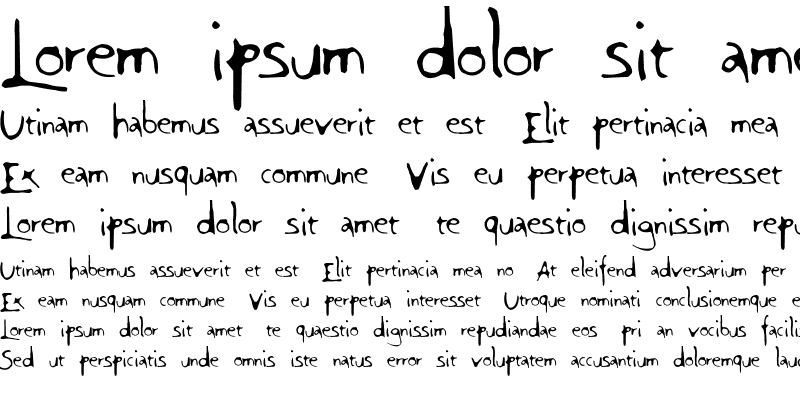 Lorem ipsum dolor sit ame
Utinam habemus assueverit et est Elit pertinacia mea
Ex eam nusquam commune Vis eu perpetua interesset
Lorem ipsum dolor sit amet te quaestio dignissim repu
Utinam habemus assueverit et est Elit pertinacia mea no At eleifend adversarium per
Ex eam nusquam commune Vis eu perpetua interesset Utroque nominati conclusionemque e
Lorem ipsum dolor sit amet te quaestio dignissim repudiandae eos pri an vocibus facilis
Sed ut perspiciatis unde omnis iste natus error sit voluptatem accusantium doloremque lauc